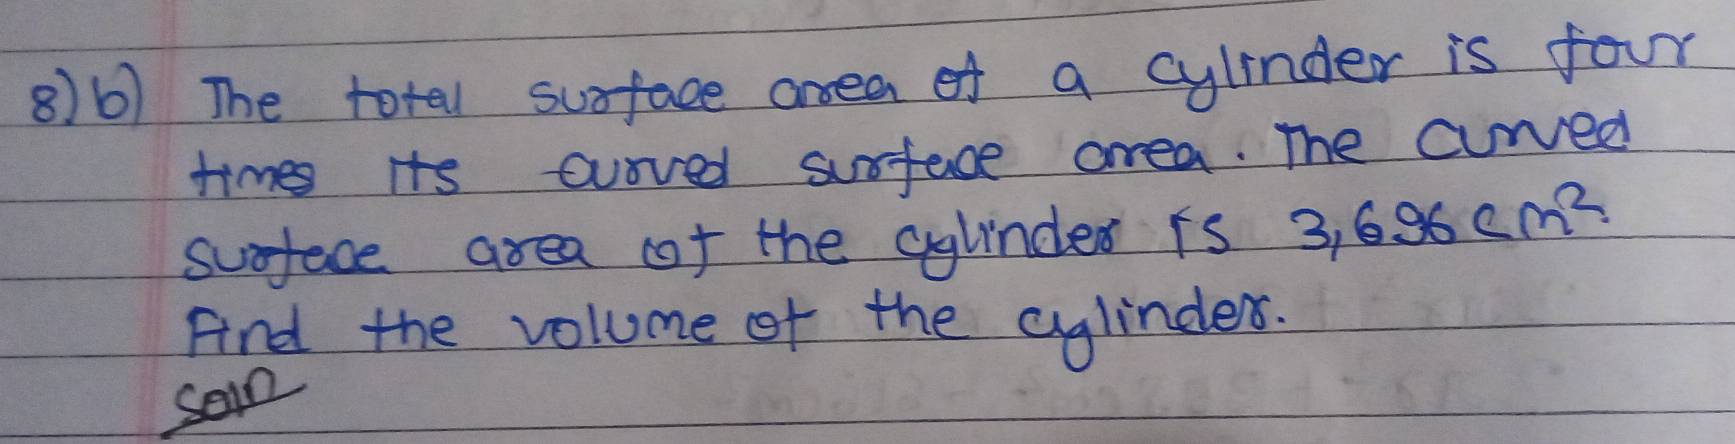 8)b) The total surface area of a cylinder is four
times its curved surface area. The curved
surface area of the cylinder is 3,696 cm².
Find the volume of the cylinder.
Soln